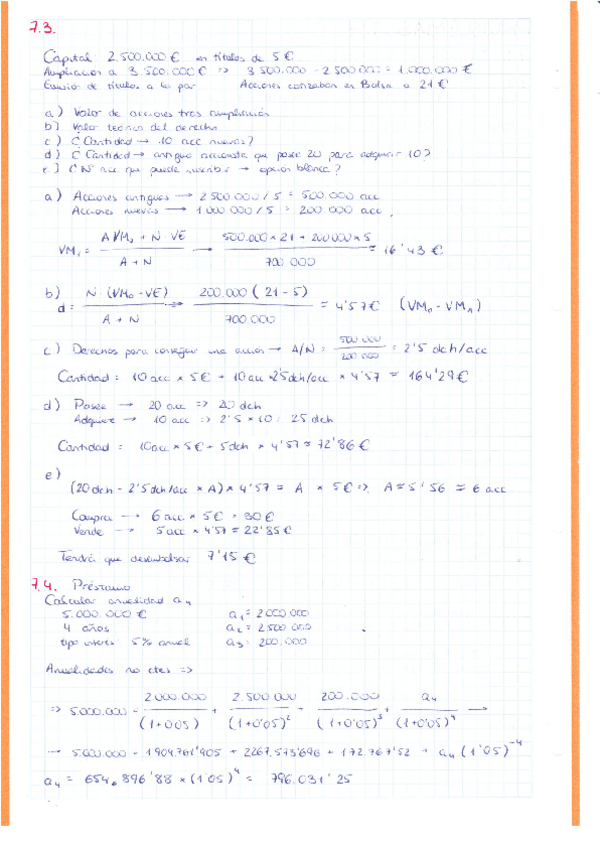 7.3.
Capital 2.500.000 € en títulos de 5 €
Ampliación a 3.500.000 € => 3 500.000 - 2 500 000 = 1.000.000 €
Emisión de títulos a la par Acciones cotizaban en Bolsa a 21 €
a) Valor de acciones tras ampliación
b) Valor teórico del derecho
c) C Cantidad → 10 acc nuevas?
d) C Cantidad → antiguo accionista que posee 20 para adquirir 10?
e) C Nº acc que puede suscribir → opción blanca?
a) Acciones antiguas → 2 500 000 / 5 = 500.000 acc
Acciones nuevas → 1 000 000 / 5 = 200 000 acc.
VM₁ = A·VM₀ + N·VE / A + N → 500.000 × 21 + 200000 × 5 / 700 000 = 16'43 €
b) d = N·(VM₀ - VE) / A + N → 200.000 (21 - 5) / 700.000 = 4'57 € (VM₀ - VM₁)
c) Derechos para conseguir una acción → A/N = 500.000 / 200 000 = 2'5 dch/acc
Cantidad = 10 acc × 5€ + 10 acc × 2'5 dch/acc × 4'57 = 164'29 €
d) Posee → 20 acc => 20 dch
Adquiere → 10 acc => 2'5 × 10 = 25 dch
Cantidad = 10 acc × 5€ + 5 dch × 4'57 = 72'86 €
e)
(20 dch - 2'5 dch/acc × A) × 4'57 = A × 5€ => A = 5'56 = 6 acc
Compra → 6 acc × 5€ = 30€
Vende → 5 acc × 4'57 = 22'85 €
Tendrá que desembolsar 7'15 €
7.4. Préstamo
Calcular anualidad a₄
5.000.000 € a₁ = 2 000.000
4 años a₂ = 2 500 000
tipo interés 5% anual a₃ = 200.000
Anualidades no ctes =>
=> 5.000.000 = 2 000.000 / (1+0'05) + 2.500 000 / (1+0'05)² + 200.000 / (1+0'05)³ + a₄ / (1+0'05)⁴ →
→ 5.000.000 = 1 904.761'905 + 2267.573'696 + 172.767'52 + a₄ (1'05)⁻⁴
a₄ = 654.896'88 × (1'05)⁴ = 796.031'25